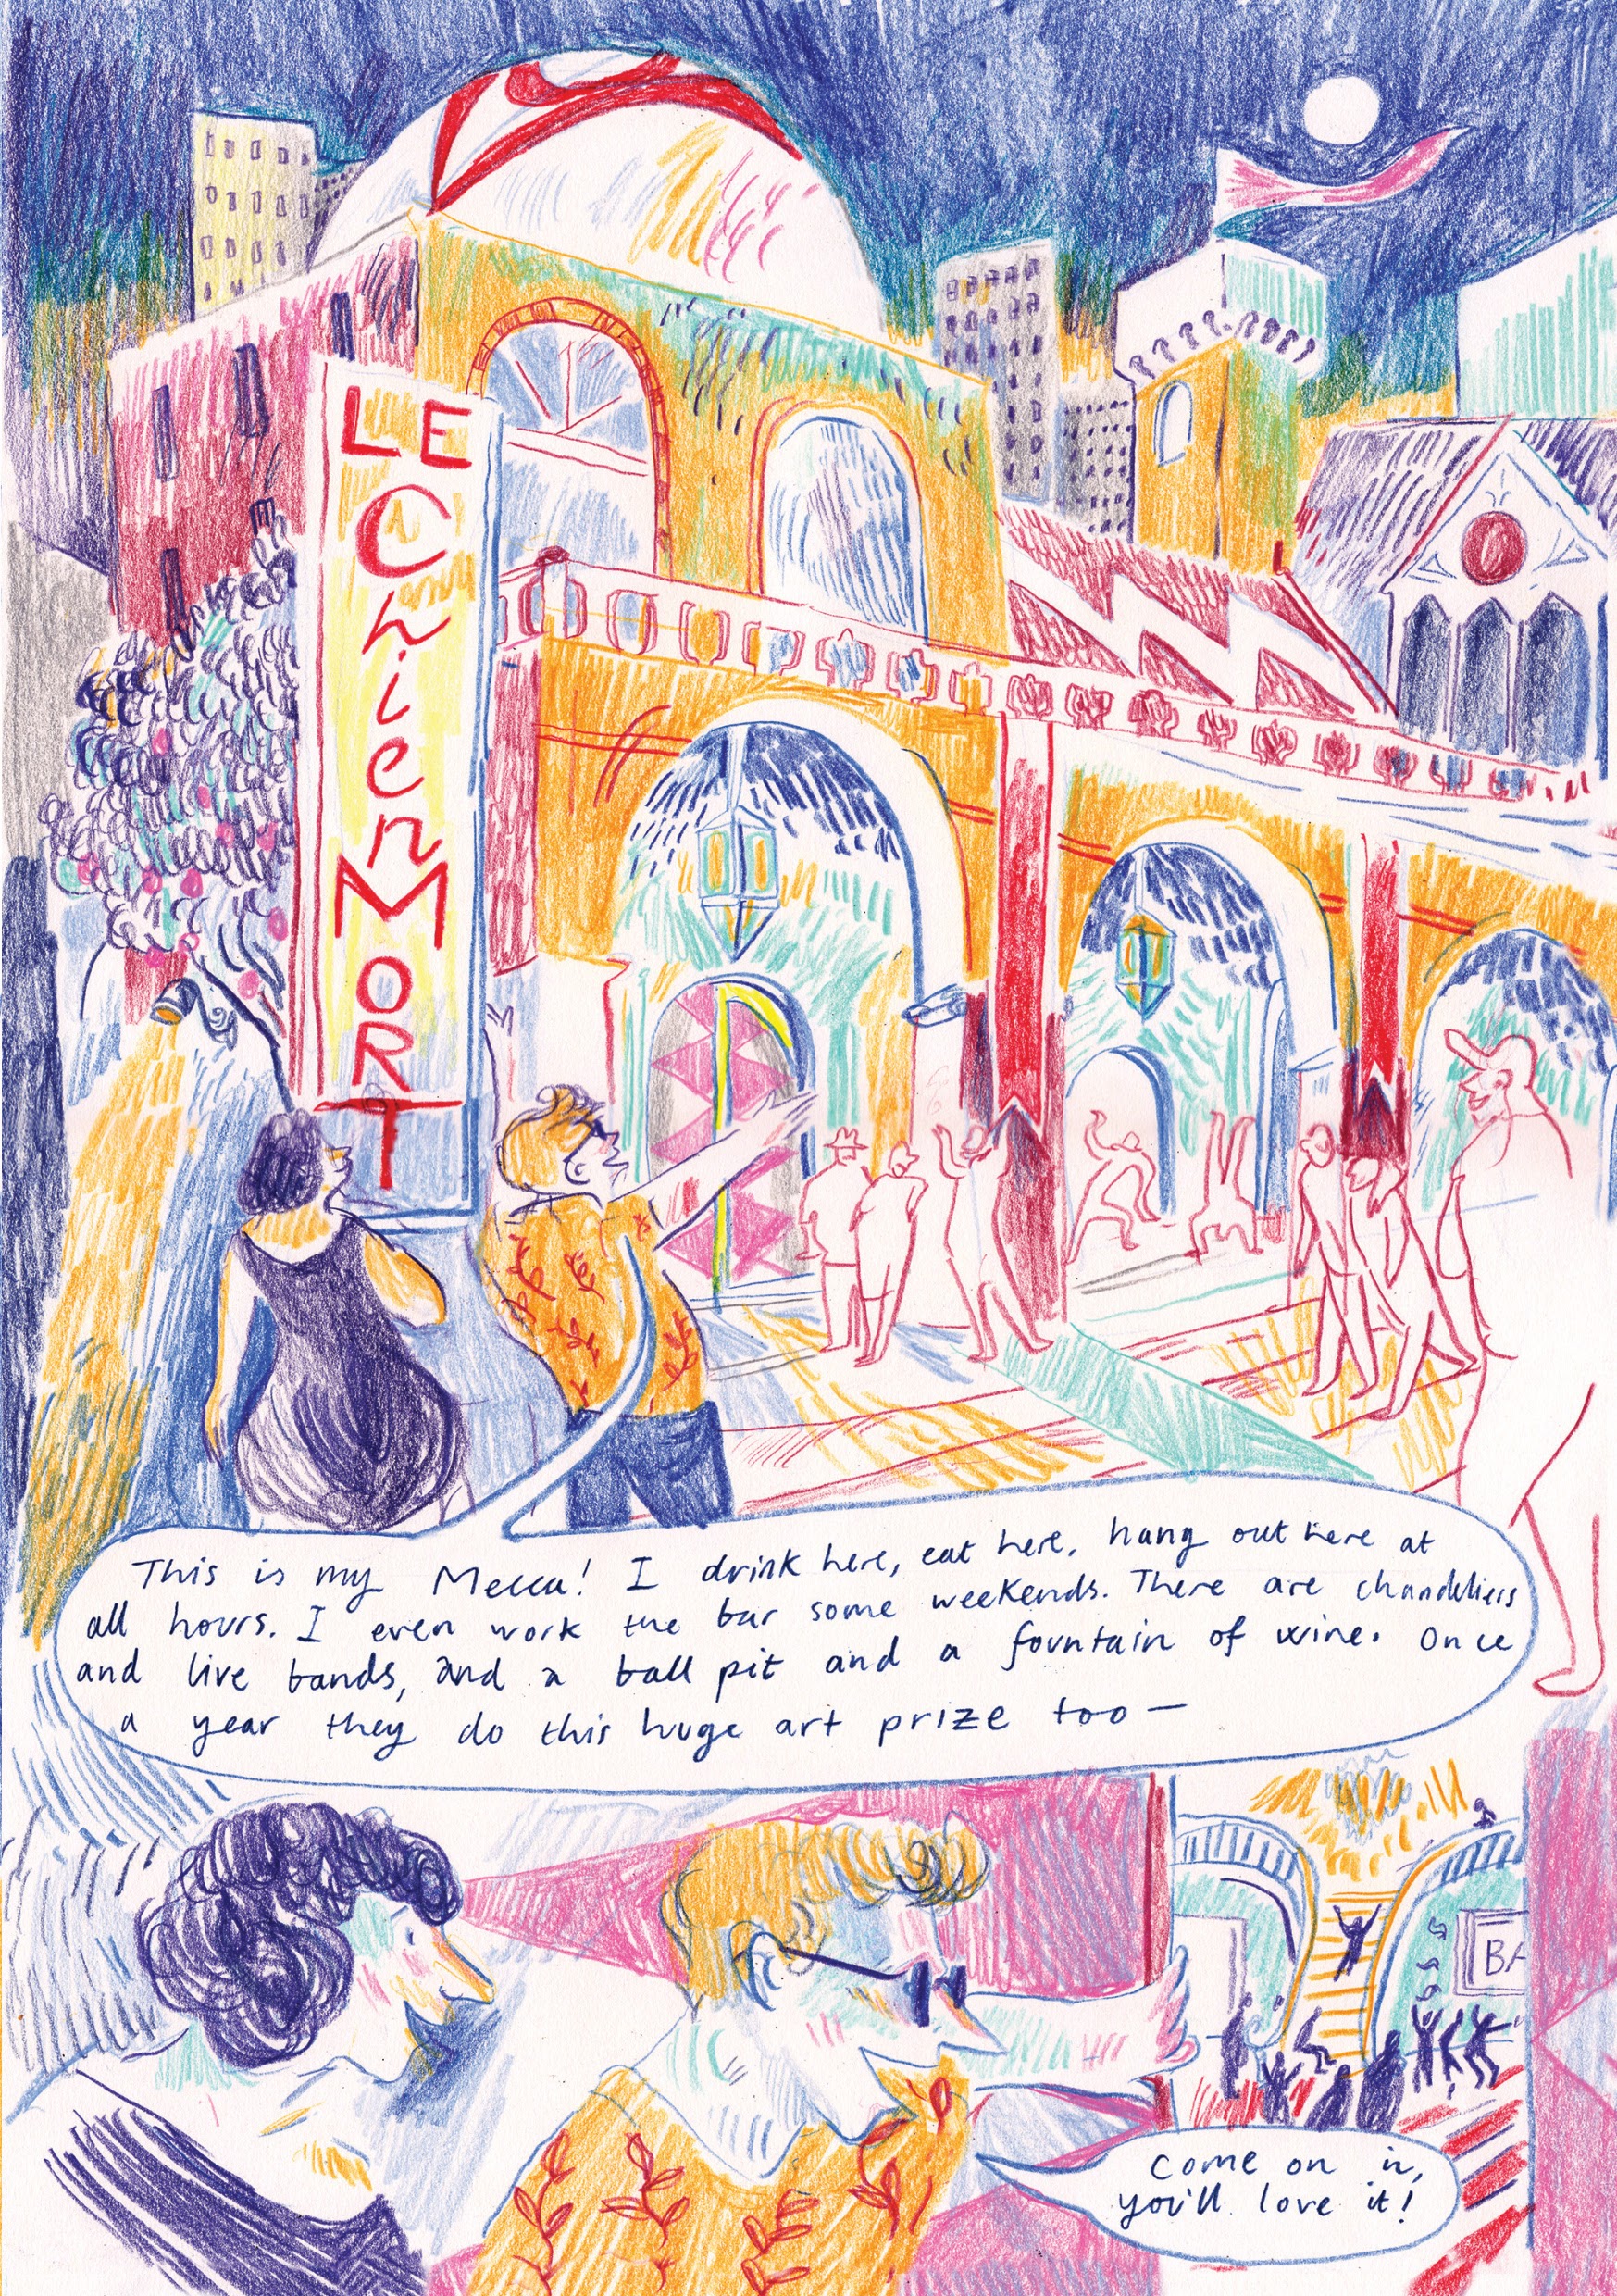 LE
Chien
MORT
This is my Mecca! I drink here, eat here, hang out here at
all hours. I even work the bar some weekends. There are chandeliers
and live bands, and a ball pit and a fountain of wine. Once
a year they do this huge art prize too —
BA
Come on in,
you'll love it!